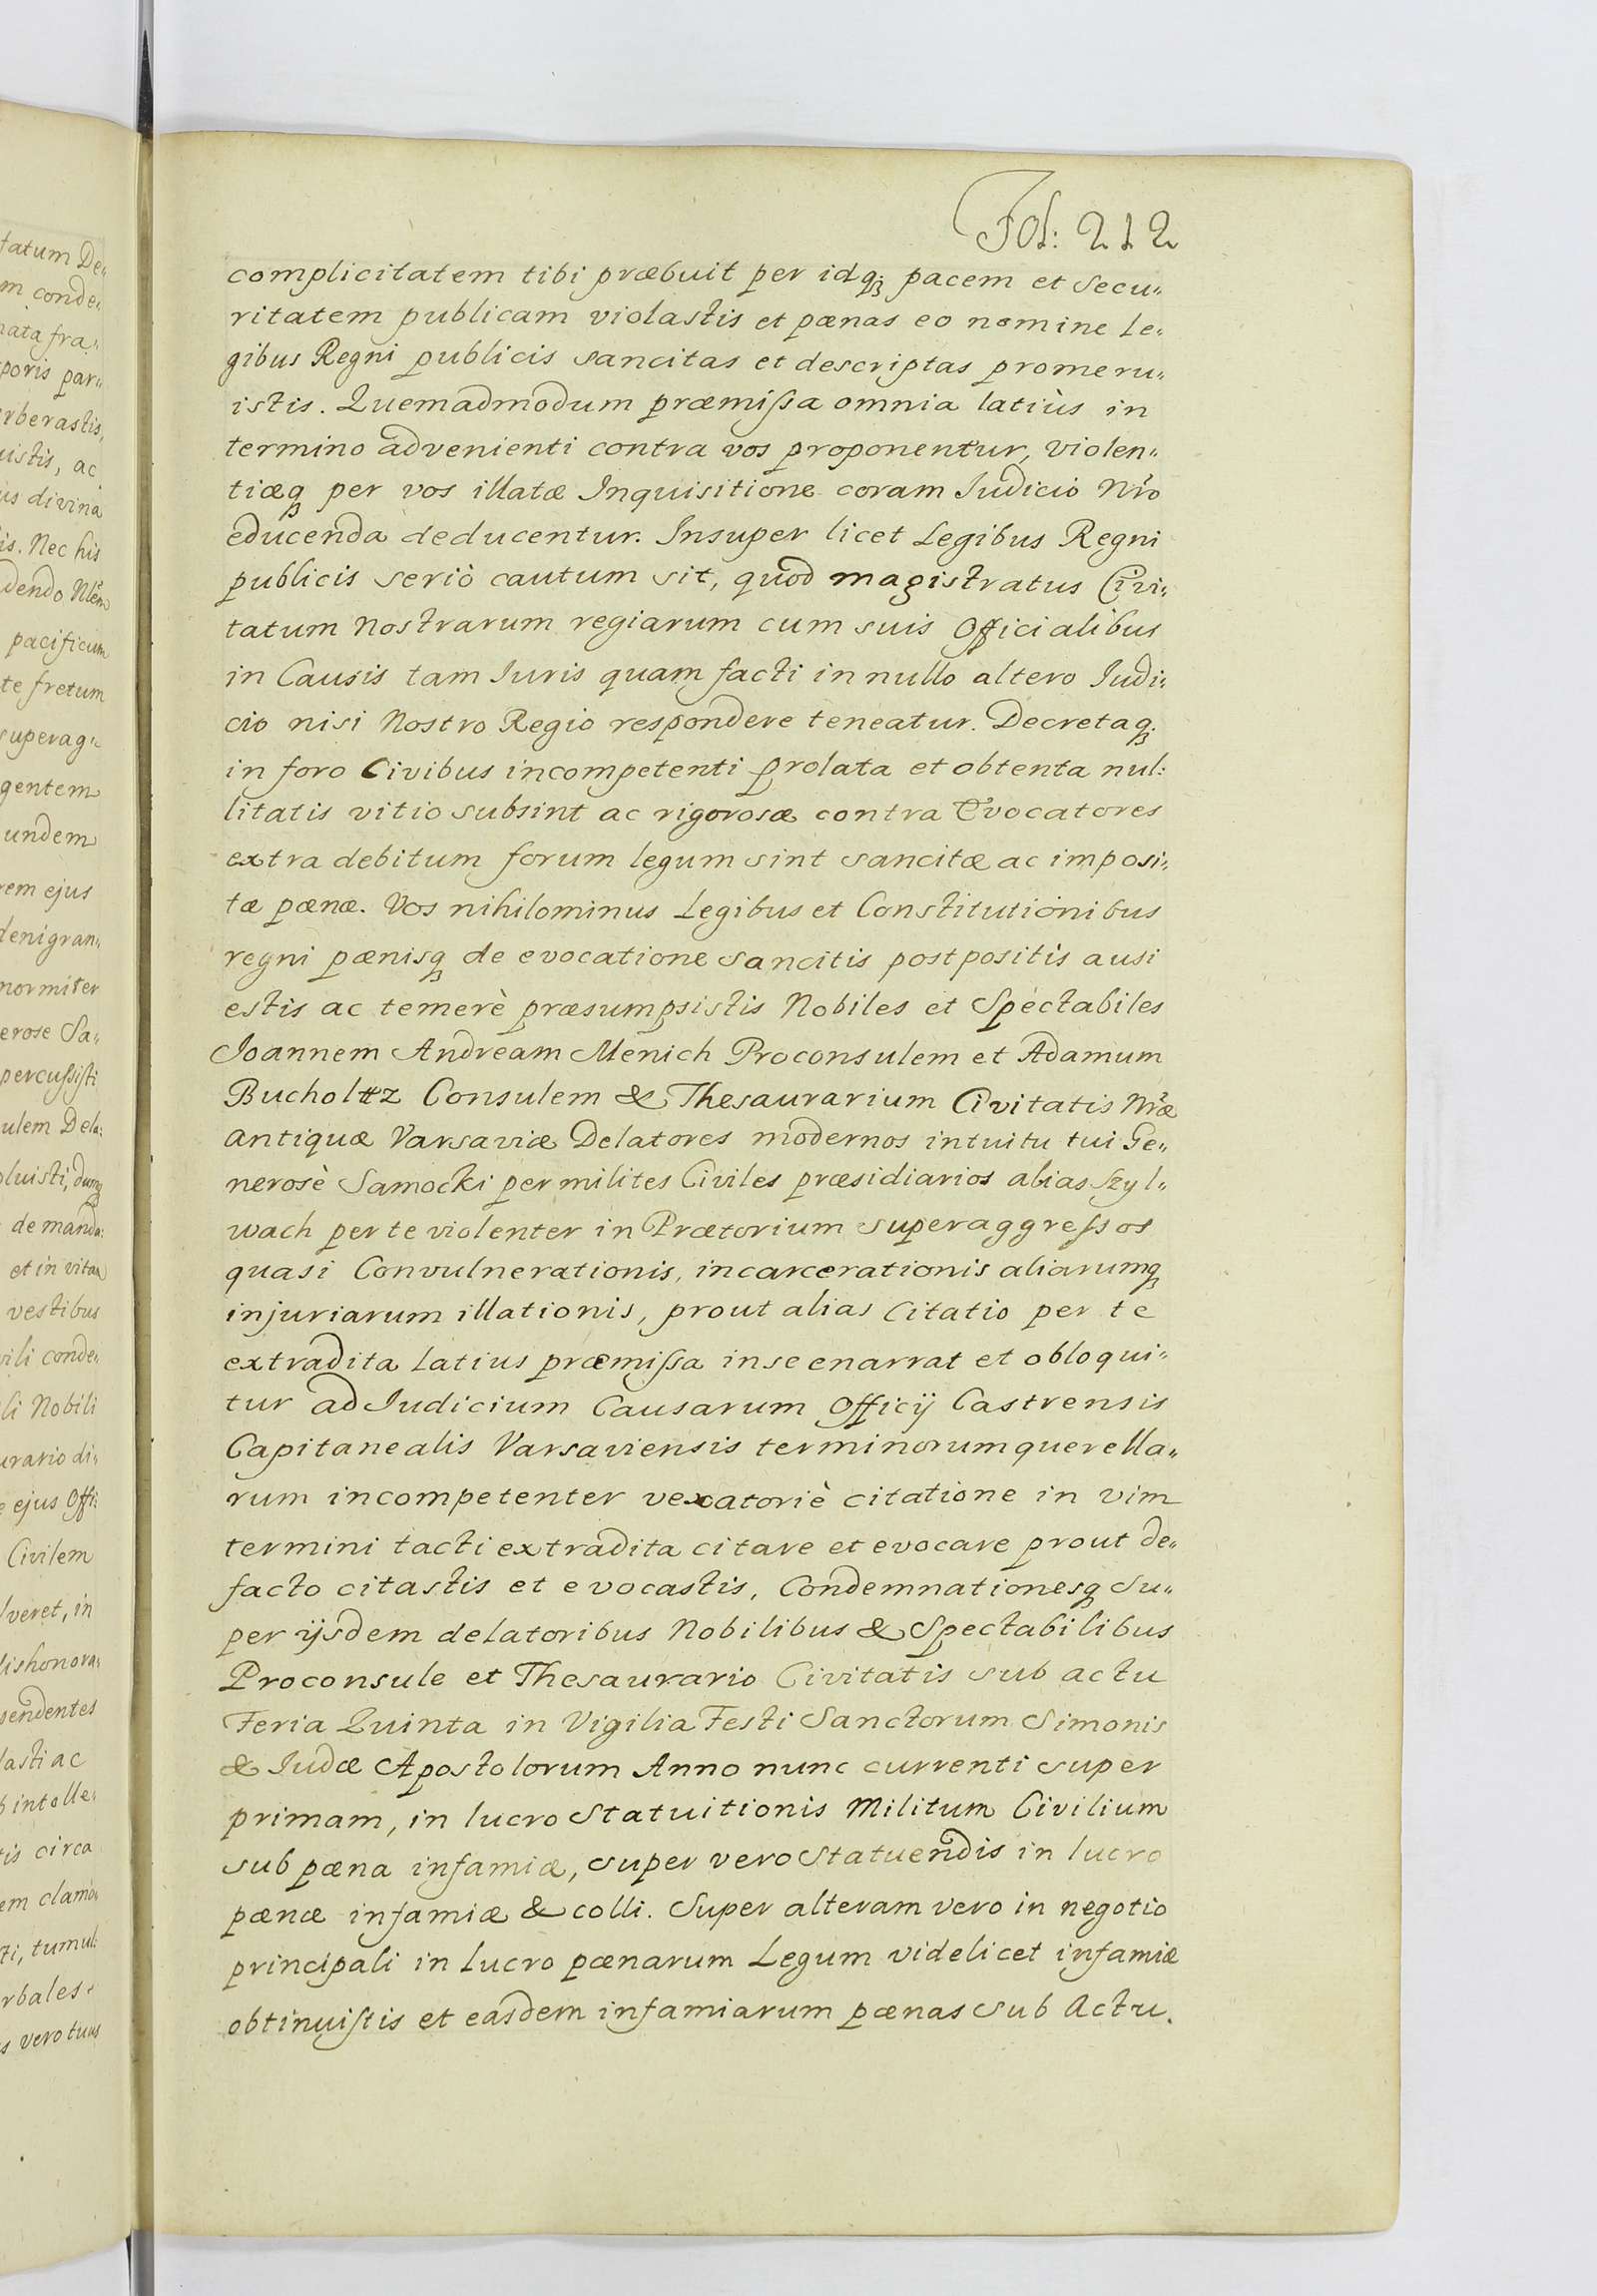 Fol: 212
complicitatem tibi præbuit per idq; pacem et secu„
ritatem publicam violastis et pœnas eo nomine Le„
gibus Regni publicis sancitas et descriptas promeru„
istis. Quemadmodum præmissa omnia latiùs in
termino advenienti contra vos proponentur, violen„
tiæq; per vos illatæ Inquisitione coram Iudicio Nr̃o
educenda deducentur. Insuper licet Legibus Regni
publicis seriò cautum sit, quod magistratus Civi„
tatum Nostrarum regiarum cum suis Officialibus
in Causis tam Iuris quam facti in nullo altero Iudi„
cio nisi Nostro Regio respondere teneatur. Decretaq;
in foro Civibus incompetenti prolata et obtenta nul:
litatis vitio subsint ac rigorosæ contra Evocatores
extra debitum forum legum sint sancitæ ac imposi„
tæ pœnæ. Vos nihilominus Legibus et Constitutionibus
regni pœnisq; de evocatione sancitis postpositis ausi
estis ac temerè præsumpsistis Nobiles et Spectabiles
Ioannem Andream Menich Proconsulem et Adamum
Bucholtz Consulem & Thesaurarium Civitatis Nr̃æ
antiquæ Varsaviæ Delatores modernos intuitu tui Ge„
nerosè Samocki per milites Civiles præsidiarios alias Szyl„
wach per te violenter in Prætorium superaggressos
quasi Convulnerationis, incarcerationis aliarumq;
injuriarum illationis, prout alias Citatio per te
extradita latius præmissa in se enarrat et obloqui„
tur ad Iudicium Causarum Officij Castrensis
Capitanealis Varsaviensis terminorum querella„
rum incompetenter vexatoriè citatione in vim
termini tacti extradita citare et evocare prout de„
facto citastis et evocastis, Condemnationesq; su„
per ijsdem delatoribus Nobilibus & Spectabilibus
Proconsule et Thesaurario Civitatis sub actu
Feria Quinta in Vigilia Festi Sanctorum Simonis
& Iudæ Apostolorum Anno nunc currenti super
primam, in lucro statuitionis Militum Civilium
sub pœna infamiæ, super vero statuendis in lucro
pœnæ infamiæ & colli. Super alteram vero in negotio
principali in lucro pœnarum Legum videlicet infamiæ
obtinuistis et easdem infamiarum pœnas sub Actu.